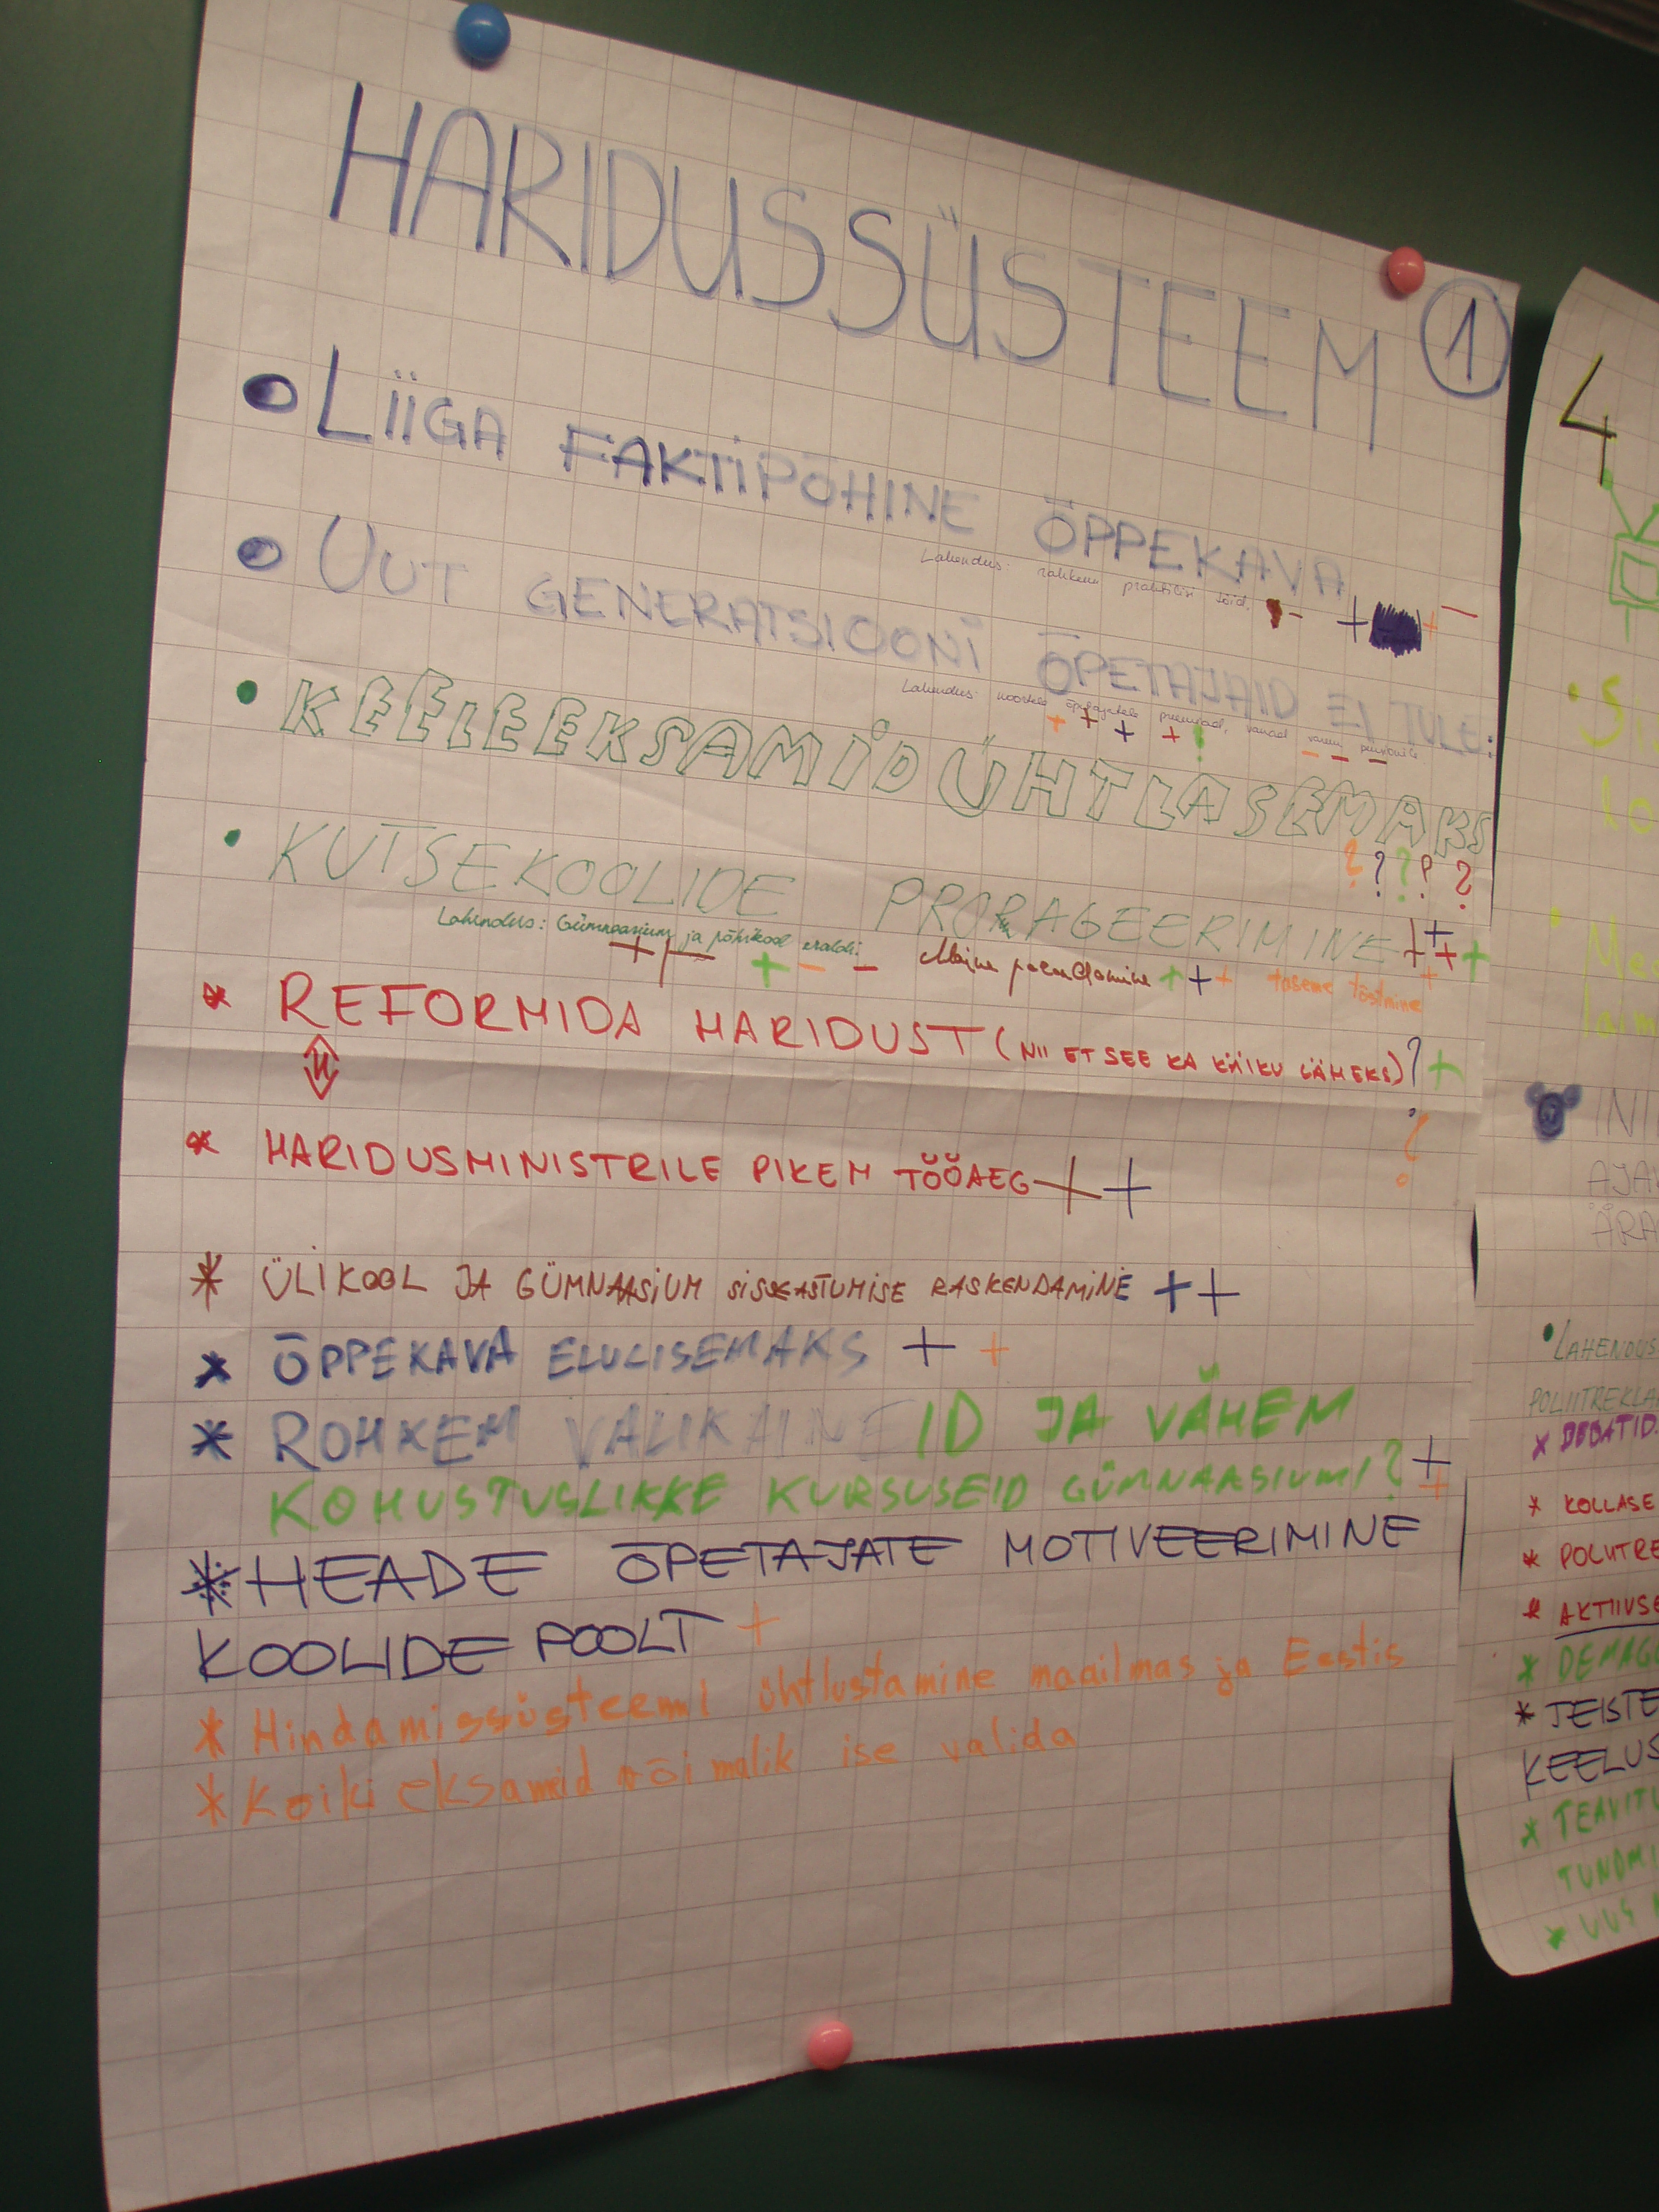 HARIDUSSÜSTEEM 1
LIIGA FAKTIPÕHINE ÕPPEKAVA
Lahendus: rohkem praktilisi töid.
UUT GENERATSIOONI ÕPETAJAID EI TULE:
Lahendus: noortele õpetajatele preemiad, vanad varem pensionile
KEELEEKSAMID ÜHTLASEMAKS
? ? ? ? ?
KUTSEKOOLIDE PRORAGEERIMINE
Lahendus: Gümnaasium ja põhikool eraldi.
Maine parandamine + + + taseme tõstmine
* REFORMIDA HARIDUST (NII ET SEE KA KÄIKU LÄHEKS) ? +
* HARIDUSMINISTRILE PIKEM TÖÖAEG + +
* ÜLIKOOL JA GÜMNAASIUM SISSEASTUMISE RASKENDAMINE + +
* ÕPPEKAVA ELULISEMAKS + +
* ROHKEM VALIKAINEID JA VÄHEM
KOHUSTUSLIKKE KURSUSEID GÜMNAASIUMI? + +
* HEADE ÕPETAJATE MOTIVEERIMINE
KOOLIDE POOLT +
* Hindamissüsteemi ühtlustamine maailmas ja Eestis
* Koiki eksameid võimalik ise valida
4
LAHENDUS
* DEBATID.
* KOLLASE
* POLIITRE
* AKTIIVSE
* DEMAGO
* TEISTE
KEELUS
* TEAVITU
TUNDMI
* UUS